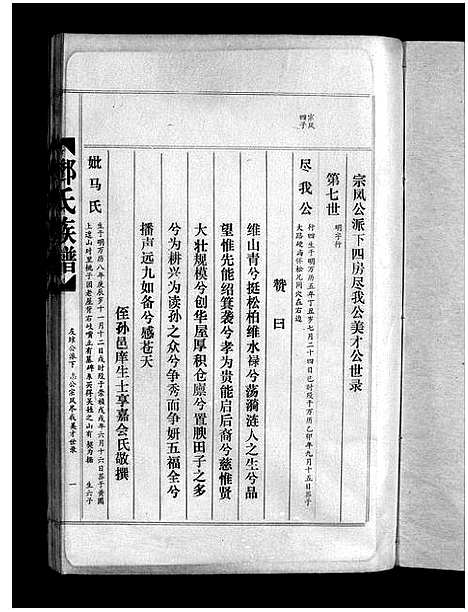 宗凤公派下四房尽我公美才公世录
第七世
明字行
宗凤
四子
尽我公
行四生于明万历五年丁丑岁七月二十四日巳时殁于万历乙卯年九月十五日葬于
大路硬冯怀松元同穴在右边
赞曰
维山青兮挺松柏维水禄兮荡漪涟人之生兮品
望惟先能绍箕裘兮孝为贵能启后裔兮慈惟贤
大壮规模兮创华屋厚积仓廪兮置腴田子之多
兮为耕兴为读孙之众兮争秀而争妍五福全兮
播声远九如备兮感苍天
侄孙邑庠生士享嘉会氏敬撰
妣马氏
生于明万历八年庚辰岁十一月十二日戌时殁于崇祯戊戌年六月十六日葬于黄圃
上边山对里桃子园老屋背右岐嘴立有墓碑东买得关姓之山有契为据
生六子
氏族谱
左绿公派下 宗凤尽我美才世录
一